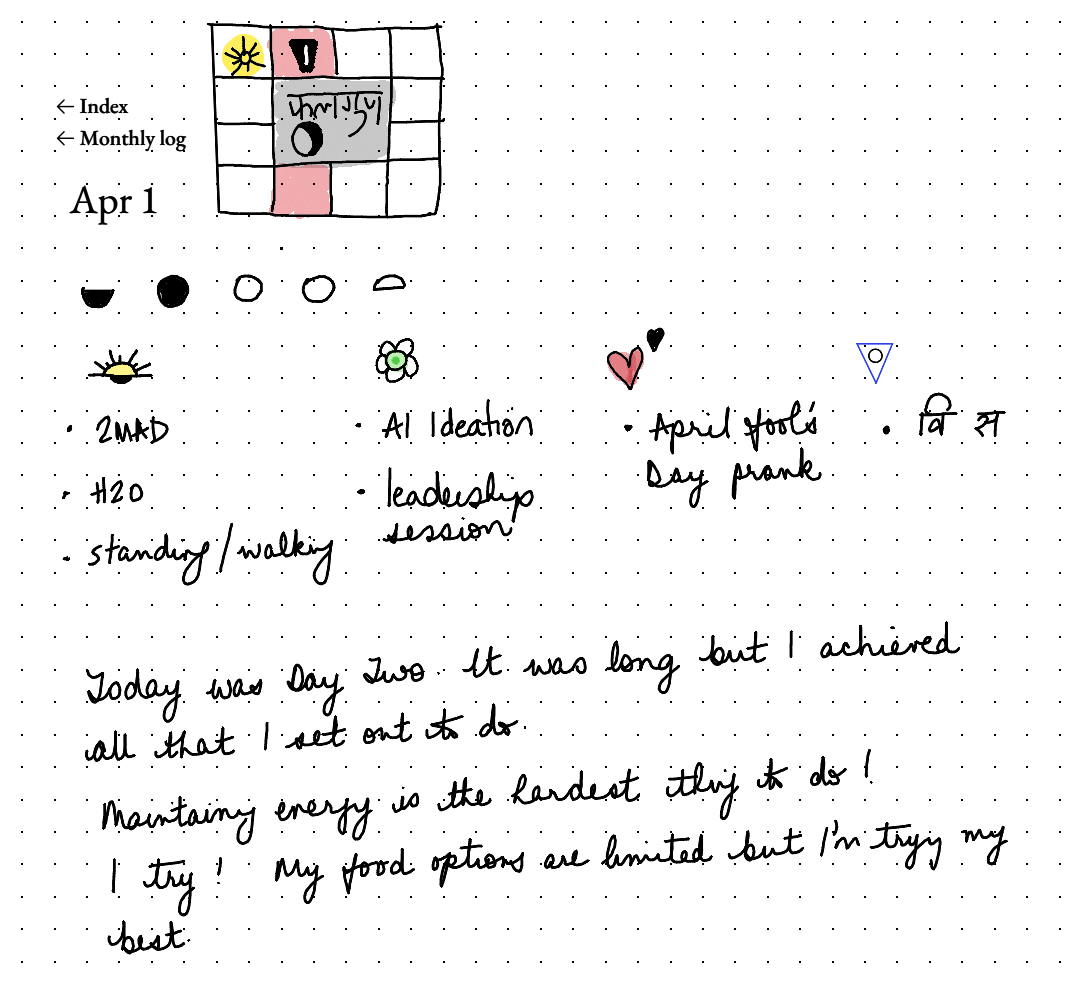 ← Index
← Monthly log
Apr 1
2MAD
AI Ideation
April fool's
वि स
H2O
leadership
Day prank
session
standing/walking
Today was Day Two. It was long but I achieved
all that I set out to do.
Maintaing energy is the hardest thig to do!
I try! My food options are limited but I'm tryy my
best.